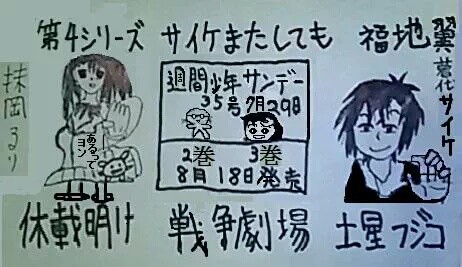 第4シリーズ サイケまたしても 福地翼
著代
サイケ
抹岡るり
週間少年サンデー
35号7月29日
あるってヨン
2巻 3巻
8月18日発売
休載明け 戦争劇場 土星フジコ